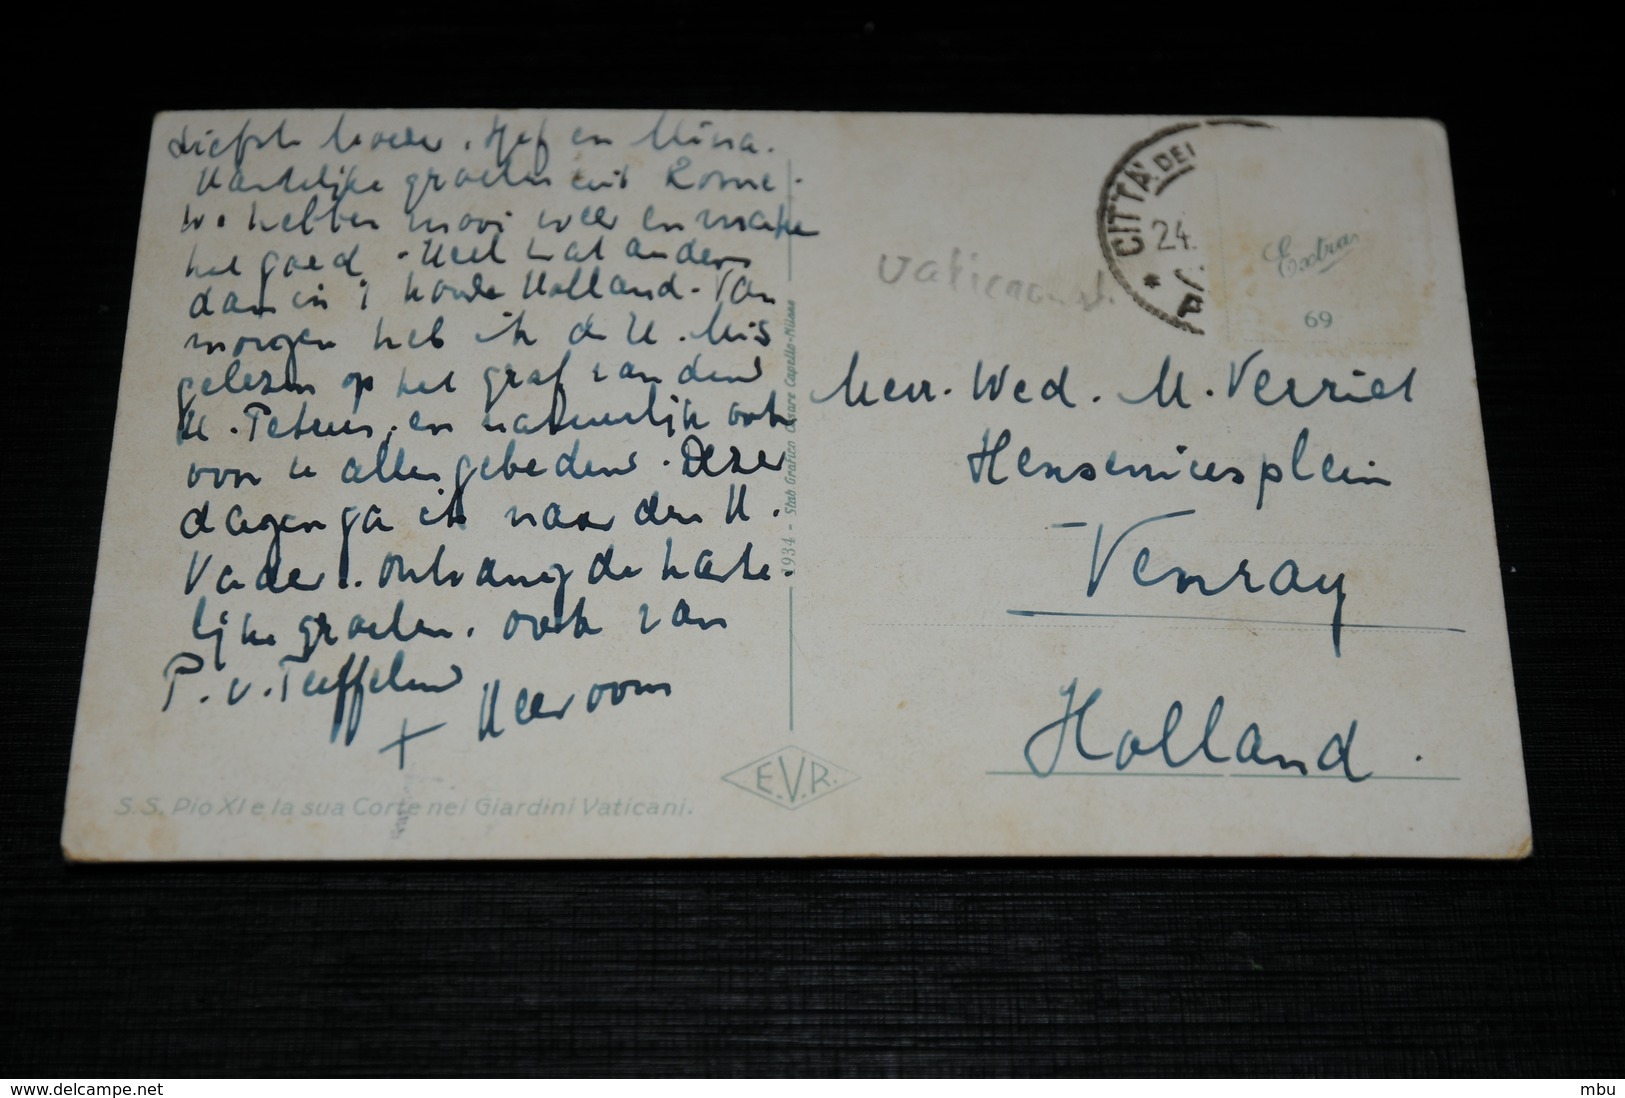 Liefste Moeder, Hef en Mina.
Hartelijke groeten uit Rome.
We hebben mooi weer en make
het goed. Heel wat anders
dan in 't koude Holland. Van
morgen heb ik de H. Mis
gelezen op het graf van den
H. Petrus, en natuurlijk ook
voor u allen gebeden. Deze
dagen ga ik naar den H.
Vader. Ontvang de harte-
lijke groeten, ook van
P. v. Teeffelen
+ Heeroom
S. S. Pio XI e la sua Corte nei Giardini Vaticani.
1934 - Stab Grafico Cesare Capello-Milano
E.V.R.
CITTÀ DEL
24.
Extra
69
Vaticaanst.
Mevr. Wed. M. Verriet
Henseniusplein
Venray
Holland.
www.delcampe.net
mbu